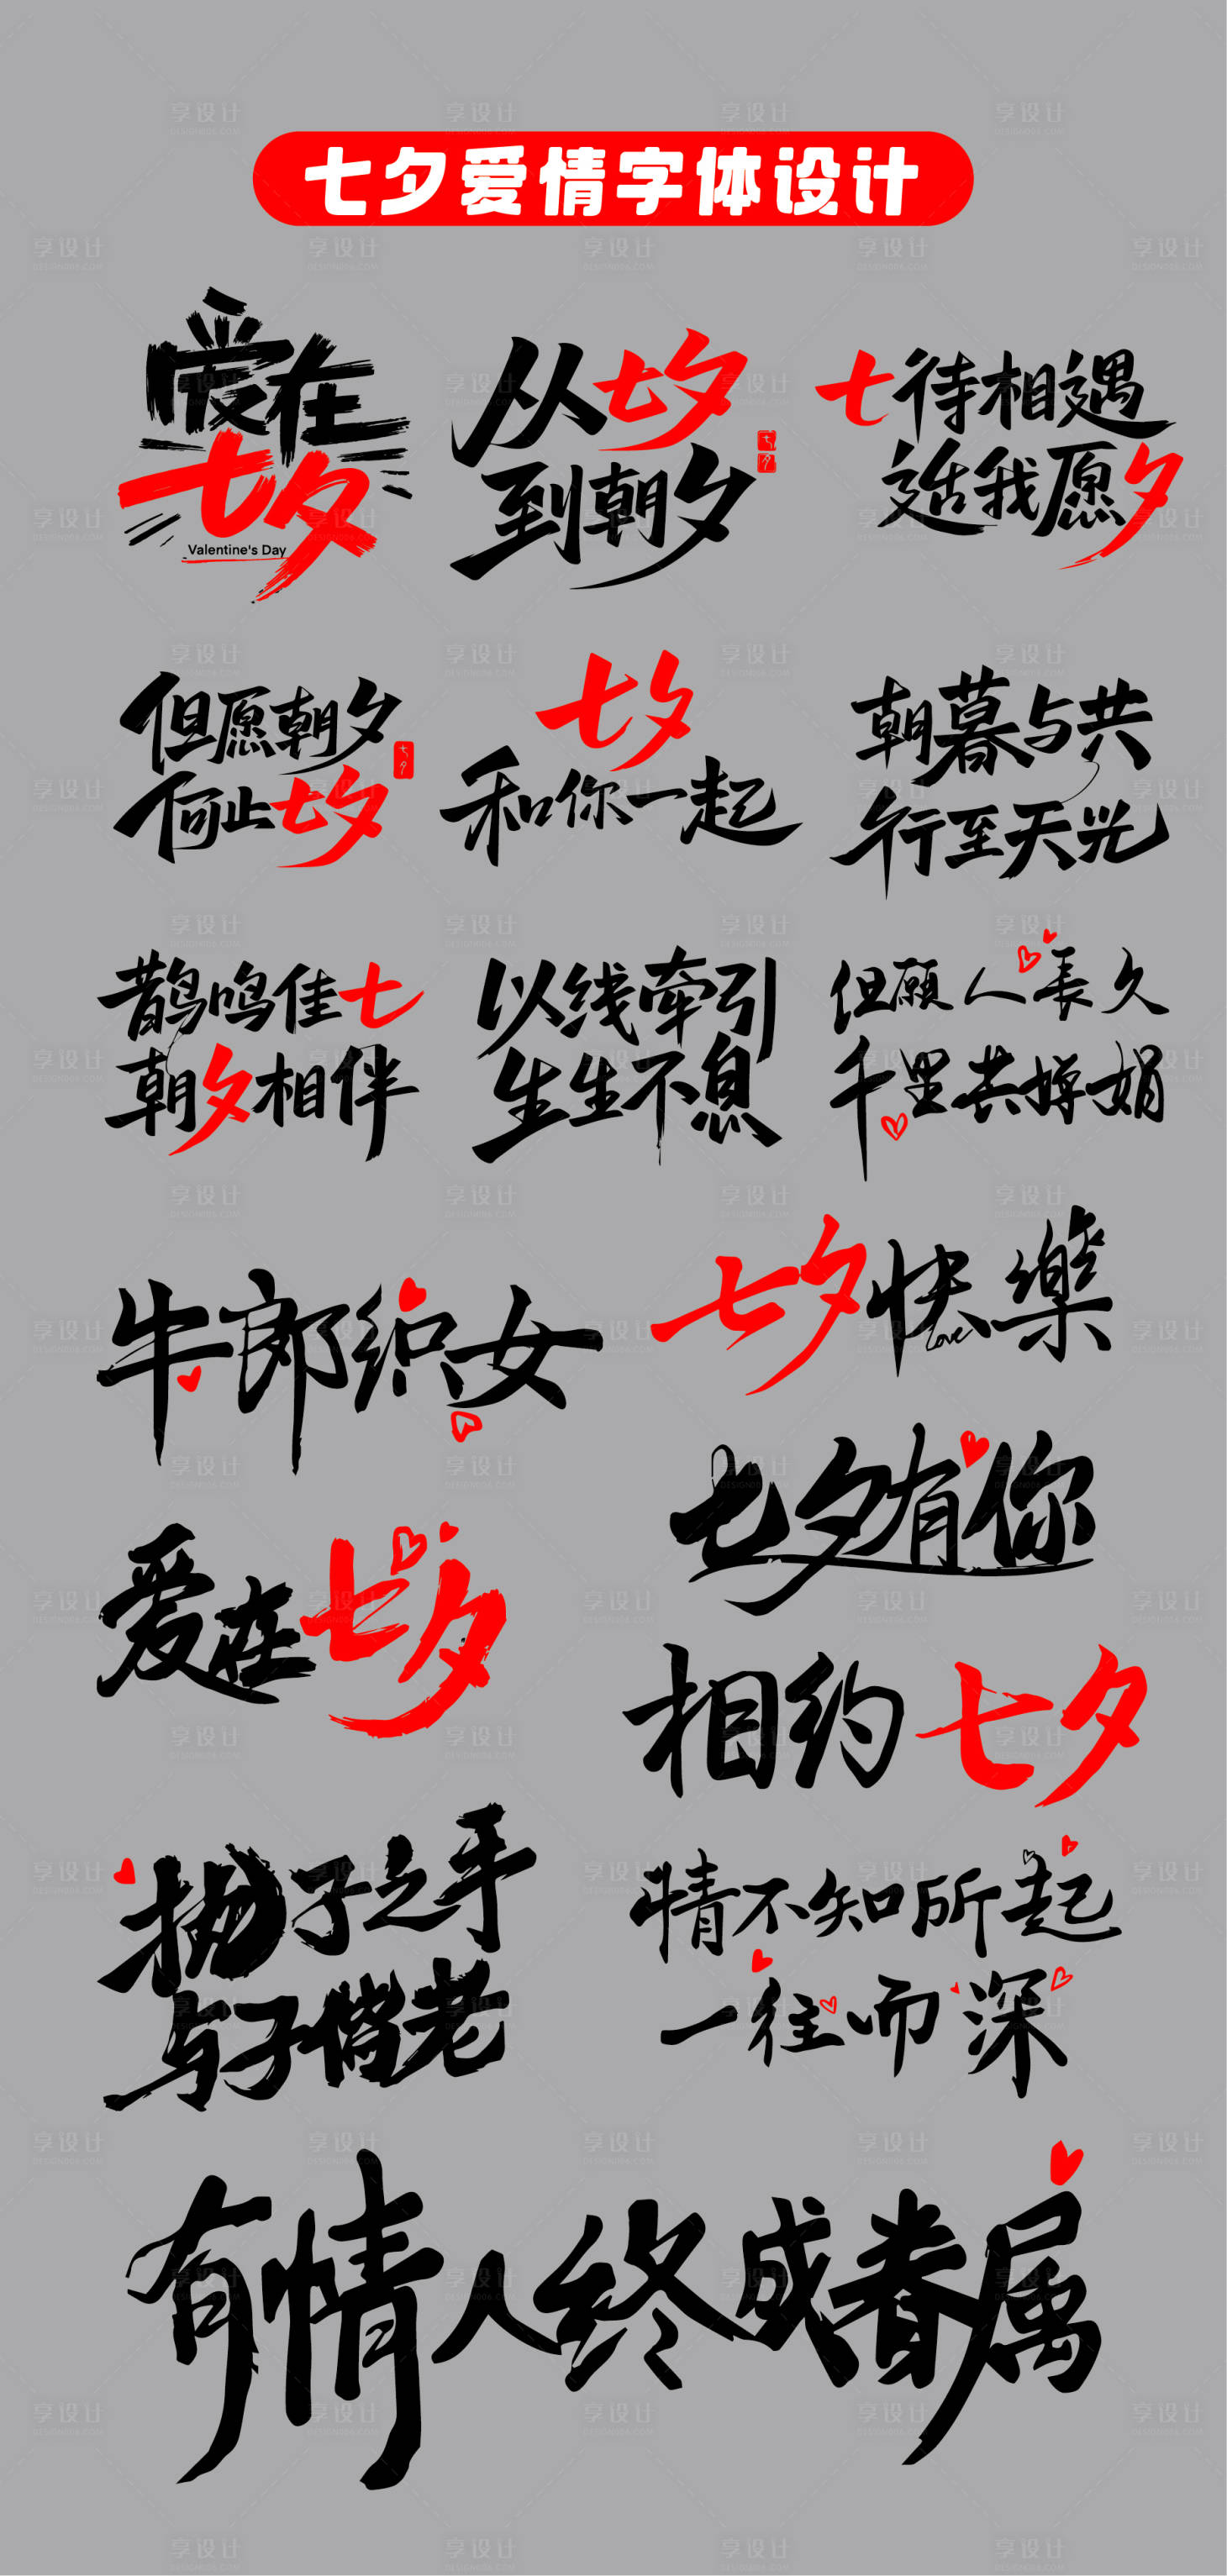 七夕爱情字体设计
爱在
七夕
Valentine's Day
从七夕
到朝夕
七夕
七待相遇
适我愿夕
但愿朝夕
何止七夕
七夕
七夕
和你一起
朝暮与共
行至天光
鹊鸣佳七
朝夕相伴
以线牵引
生生不息
但願人長久
千里共婵娟
牛郎织女
七夕快樂
Love
七夕有你
爱在七夕
相约七夕
执子之手
与子偕老
情不知所起
一往而深
有情人终成眷属
享设计
DESIGN006.COM